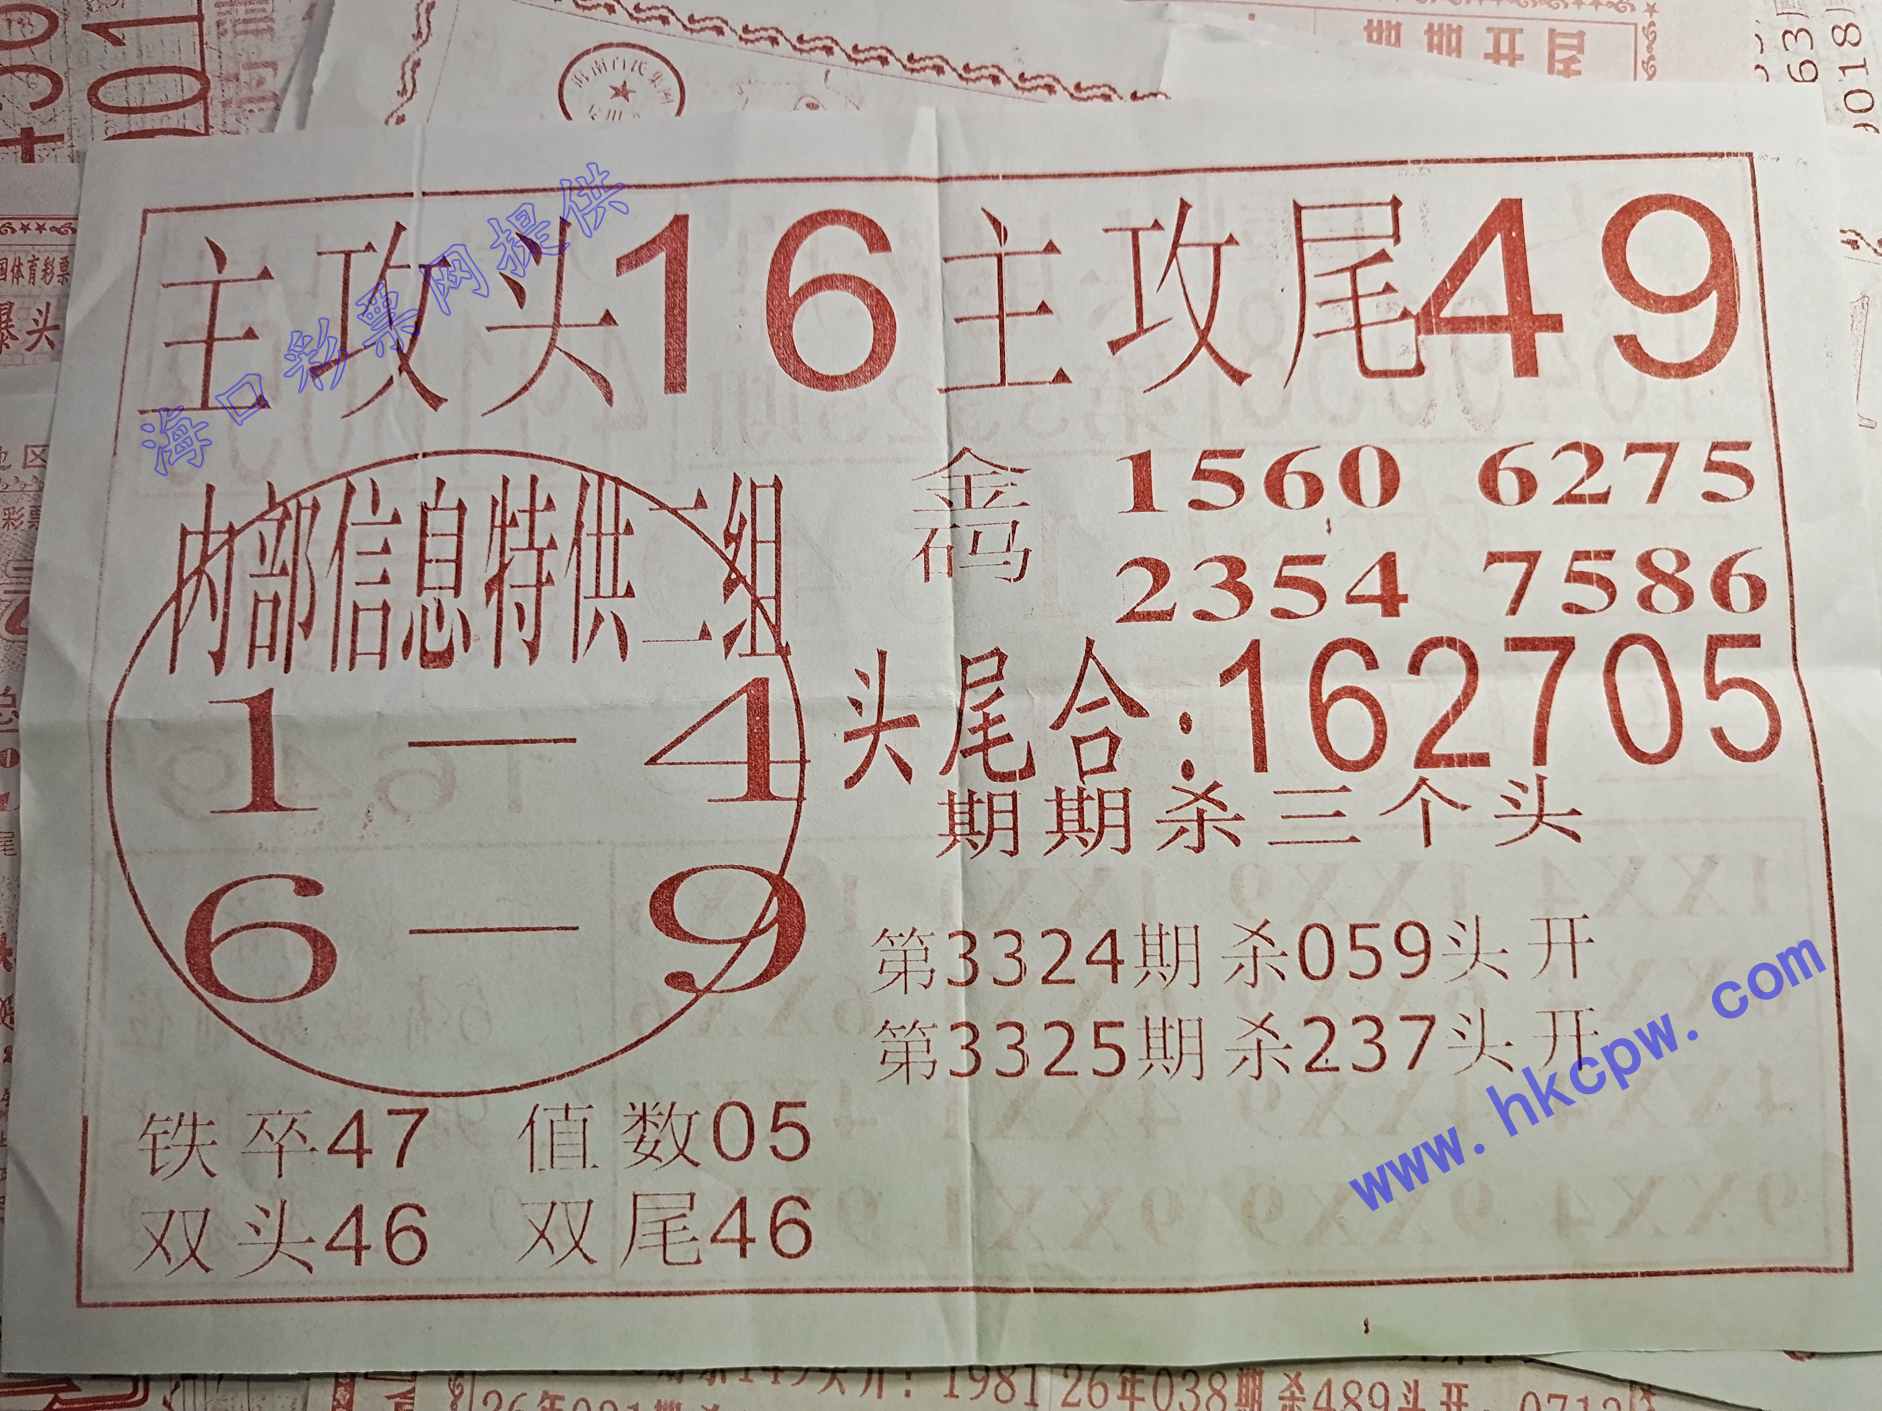 主攻头16 主攻尾49
海口彩票网提供
内部信息特供二组
1—4
6—9
金码 1560 6275
2354 7586
头尾合:162705
期期杀三个头
第3324期杀059头开
第3325期杀237头开
铁卒47 值数05
双头46 双尾46
www.hkcpw.com
国体育彩票
爆头
1981 26年038期杀489头开:0712